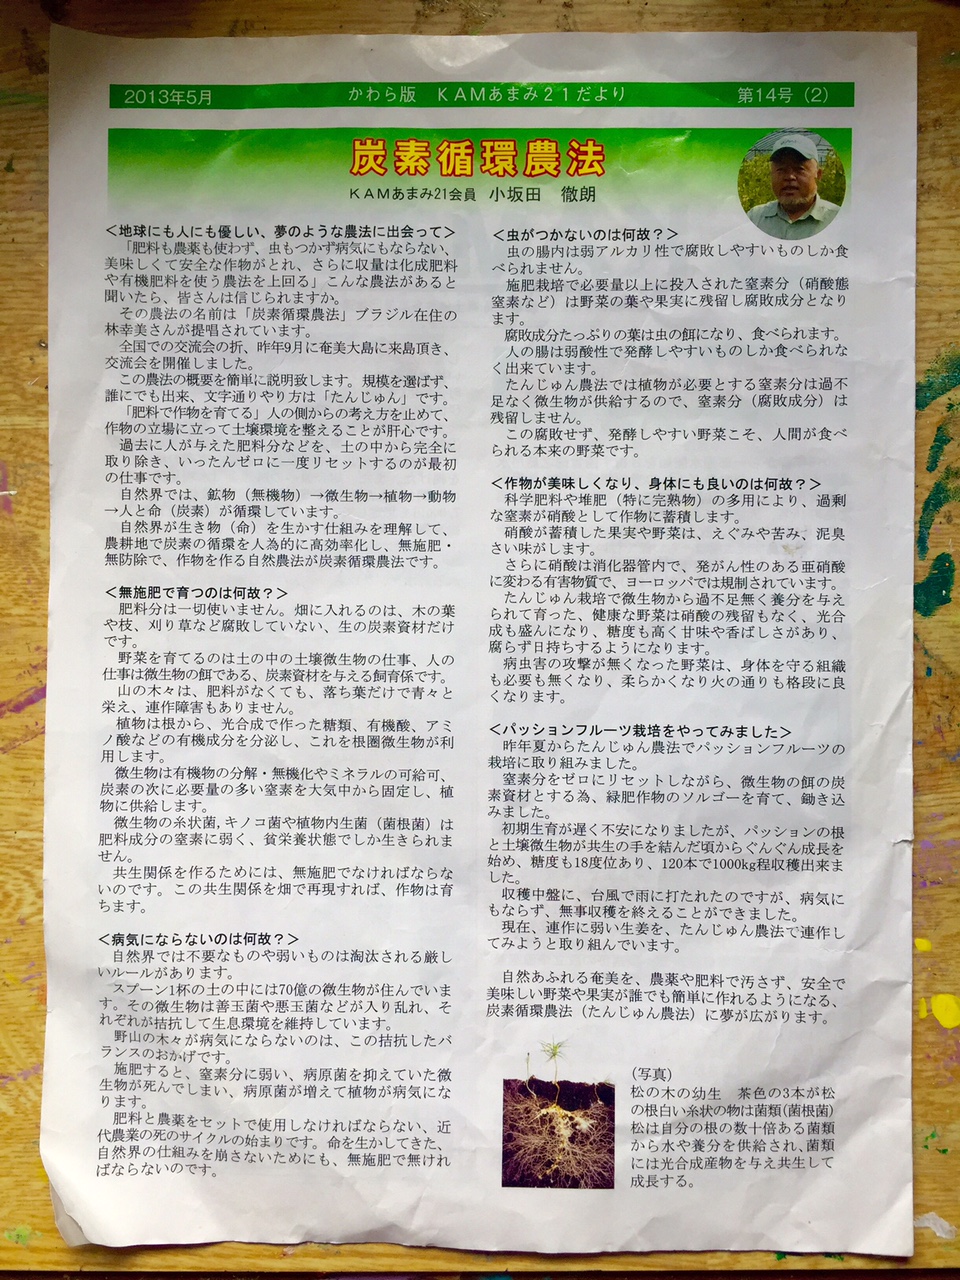 2013年5月
かわら版　ＫＡＭあまみ２１だより
第14号（2）
炭素循環農法
ＫＡＭあまみ21会員　小坂田　徹朗
＜地球にも人にも優しい、夢のような農法に出会って＞
「肥料も農薬も使わず、虫もつかず病気にもならない、
美味しくて安全な作物がとれ、さらに収量は化成肥料
や有機肥料を使う農法を上回る」こんな農法があると
聞いたら、皆さんは信じられますか。
その農法の名前は「炭素循環農法」ブラジル在住の
林幸美さんが提唱されています。
全国での交流会の折、昨年9月に奄美大島に来島頂き、
交流会を開催しました。
この農法の概要を簡単に説明致します。規模を選ばず、
誰にでも出来、文字通りやり方は「たんじゅん」です。
「肥料で作物を育てる」人の側からの考え方を止めて、
作物の立場に立って土壌環境を整えることが肝心です。
過去に人が与えた肥料分などを、土の中から完全に
取り除き、いったんゼロに一度リセットするのが最初
の仕事です。
自然界では、鉱物（無機物）→微生物→植物→動物
→人と命（炭素）が循環しています。
自然界が生き物（命）を生かす仕組みを理解して、
農耕地で炭素の循環を人為的に高効率化し、無施肥・
無防除で、作物を作る自然農法が炭素循環農法です。
＜無施肥で育つのは何故？＞
肥料分は一切使いません。畑に入れるのは、木の葉
や枝、刈り草など腐敗していない、生の炭素資材だけ
です。
野菜を育てるのは土の中の土壌微生物の仕事、人の
仕事は微生物の餌である、炭素資材を与える飼育係です。
山の木々は、肥料がなくても、落ち葉だけで青々と
栄え、連作障害もありません。
植物は根から、光合成で作った糖類、有機酸、アミ
ノ酸などの有機成分を分泌し、これを根圏微生物が利
用します。
微生物は有機物の分解・無機化やミネラルの可給可、
炭素の次に必要量の多い窒素を大気中から固定し、植
物に供給します。
微生物の糸状菌,キノコ菌や植物内生菌（菌根菌）は
肥料成分の窒素に弱く、貧栄養状態でしか生きられま
せん。
共生関係を作るためには、無施肥でなければならな
いのです。この共生関係を畑で再現すれば、作物は育
ちます。
＜病気にならないのは何故？＞
自然界では不要なものや弱いものは淘汰される厳し
いルールがあります。
スプーン1杯の土の中には70億の微生物が住んでいま
す。その微生物は善玉菌や悪玉菌などが入り乱れ、そ
れぞれが拮抗して生息環境を維持しています。
野山の木々が病気にならないのは、この拮抗したバ
ランスのおかげです。
施肥すると、窒素分に弱い、病原菌を抑えていた微
生物が死んでしまい、病原菌が増えて植物が病気にな
ります。
肥料と農薬をセットで使用しなければならない、近
代農業の死のサイクルの始まりです。命を生かしてきた、
自然界の仕組みを崩さないためにも、無施肥で無けれ
ばならないのです。
＜虫がつかないのは何故？＞
虫の腸内は弱アルカリ性で腐敗しやすいものしか食
べられません。
施肥栽培で必要量以上に投入された窒素分（硝酸態
窒素など）は野菜の葉や果実に残留し腐敗成分となり
ます。
腐敗成分たっぷりの葉は虫の餌になり、食べられます。
人の腸は弱酸性で発酵しやすいものしか食べられな
く出来ています。
たんじゅん農法では植物が必要とする窒素分は過不
足なく微生物が供給するので、窒素分（腐敗成分）は
残留しません。
この腐敗せず、発酵しやすい野菜こそ、人間が食べ
られる本来の野菜です。
＜作物が美味しくなり、身体にも良いのは何故？＞
科学肥料や堆肥（特に完熟物）の多用により、過剰
な窒素が硝酸として作物に蓄積します。
硝酸が蓄積した果実や野菜は、えぐみや苦み、泥臭
さい味がします。
さらに硝酸は消化器管内で、発がん性のある亜硝酸
に変わる有害物質で、ヨーロッパでは規制されています。
たんじゅん栽培で微生物から過不足無く養分を与え
られて育った、健康な野菜は硝酸の残留もなく、光合
成も盛んになり、糖度も高く甘味や香ばしさがあり、
腐らず日持ちするようになります。
病虫害の攻撃が無くなった野菜は、身体を守る組織
も必要も無くなり、柔らかくなり火の通りも格段に良
くなります。
＜パッションフルーツ栽培をやってみました＞
昨年夏からたんじゅん農法でパッションフルーツの
栽培に取り組みました。
窒素分をゼロにリセットしながら、微生物の餌の炭
素資材とする為、緑肥作物のソルゴーを育て、鋤き込
みました。
初期生育が遅く不安になりましたが、パッションの根
と土壌微生物が共生の手を結んだ頃からぐんぐん成長を
始め、糖度も18度位あり、120本で1000kg程収穫出来ま
した。
収穫中盤に、台風で雨に打たれたのですが、病気に
もならず、無事収穫を終えることができました。
現在、連作に弱い生姜を、たんじゅん農法で連作し
てみようと取り組んでいます。
自然あふれる奄美を、農薬や肥料で汚さず、安全で
美味しい野菜や果実が誰でも簡単に作れるようになる、
炭素循環農法（たんじゅん農法）に夢が広がります。
（写真）
松の木の幼生　茶色の3本が松
の根白い糸状の物は菌類(菌根菌)
松は自分の根の数十倍ある菌類
から水や養分を供給され、菌類
には光合成産物を与え共生して
成長する。